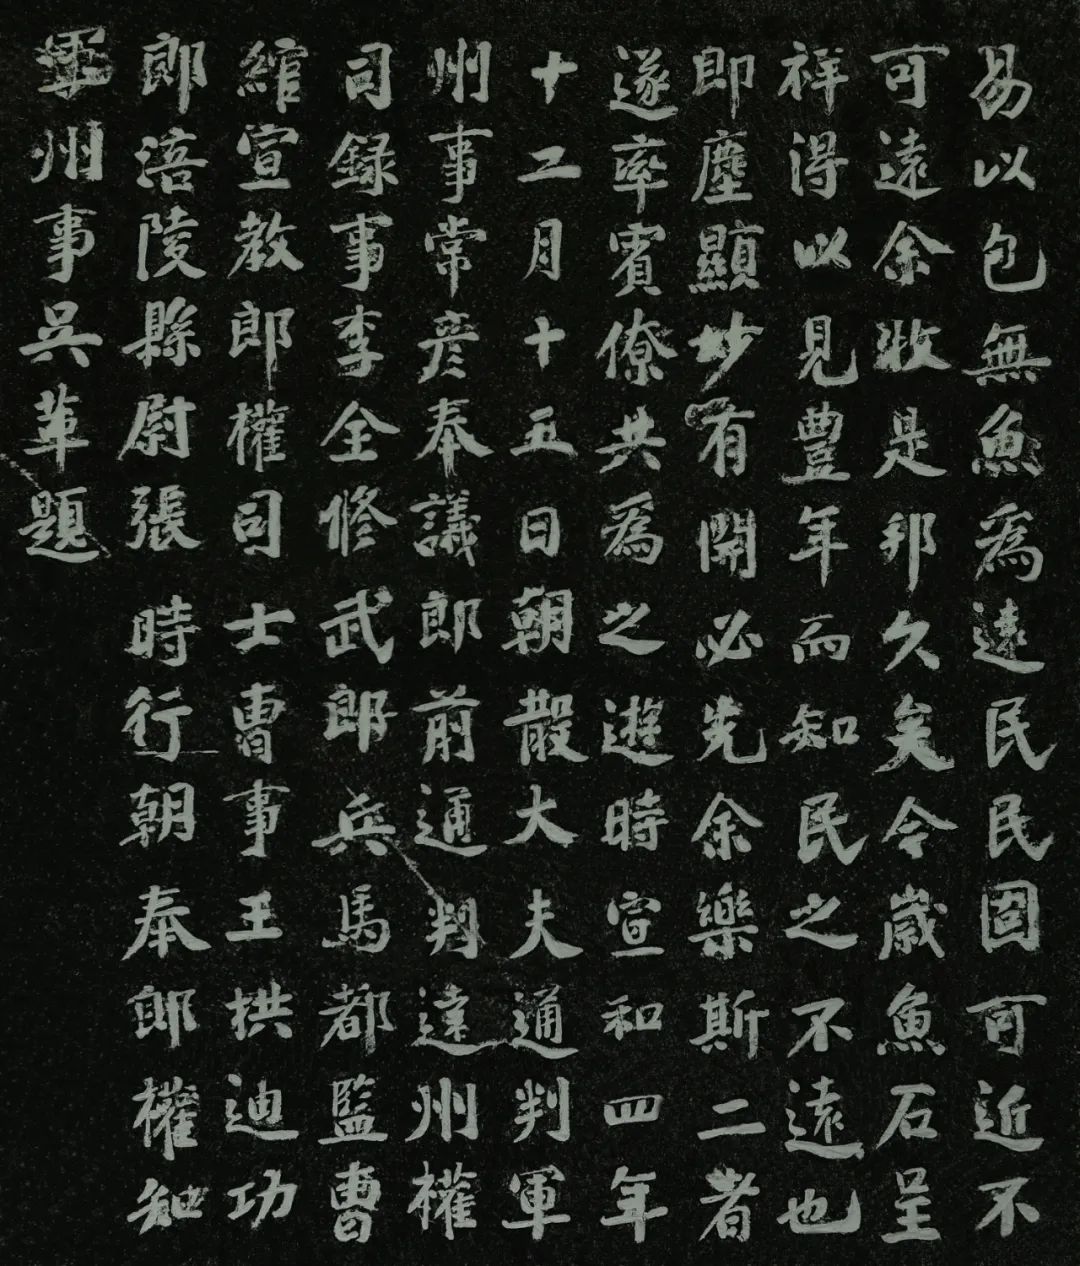 易以包無魚為遠民民固可近不
可遠余牧是邦久矣今歲魚石呈
祥得以見豐年而知民之不遠也
即塵顯妙有開必先余樂斯二者
遂率賓僚共為之遊時宣和四年
十二月十五日朝散大夫通判軍
州事常彥奉議郎前通判達州權
司録事李全修武郎兵馬都監曹
綰宣教郎權司士曹事王拱迪功
郎涪陵縣尉張時行朝奉郎權知
軍州事吳革題